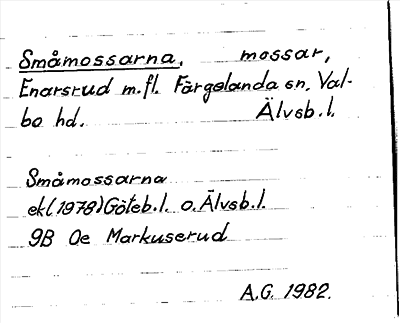 Småmossarna, mossar,
Enarsrud m.fl. Färgelanda sn. Val-
bo hd. Älvsb.l.
Småmossarna
ek(1978)Göteb.l. o.Älvsb.l.
9B 0e Markuserud
A.G. 1982.